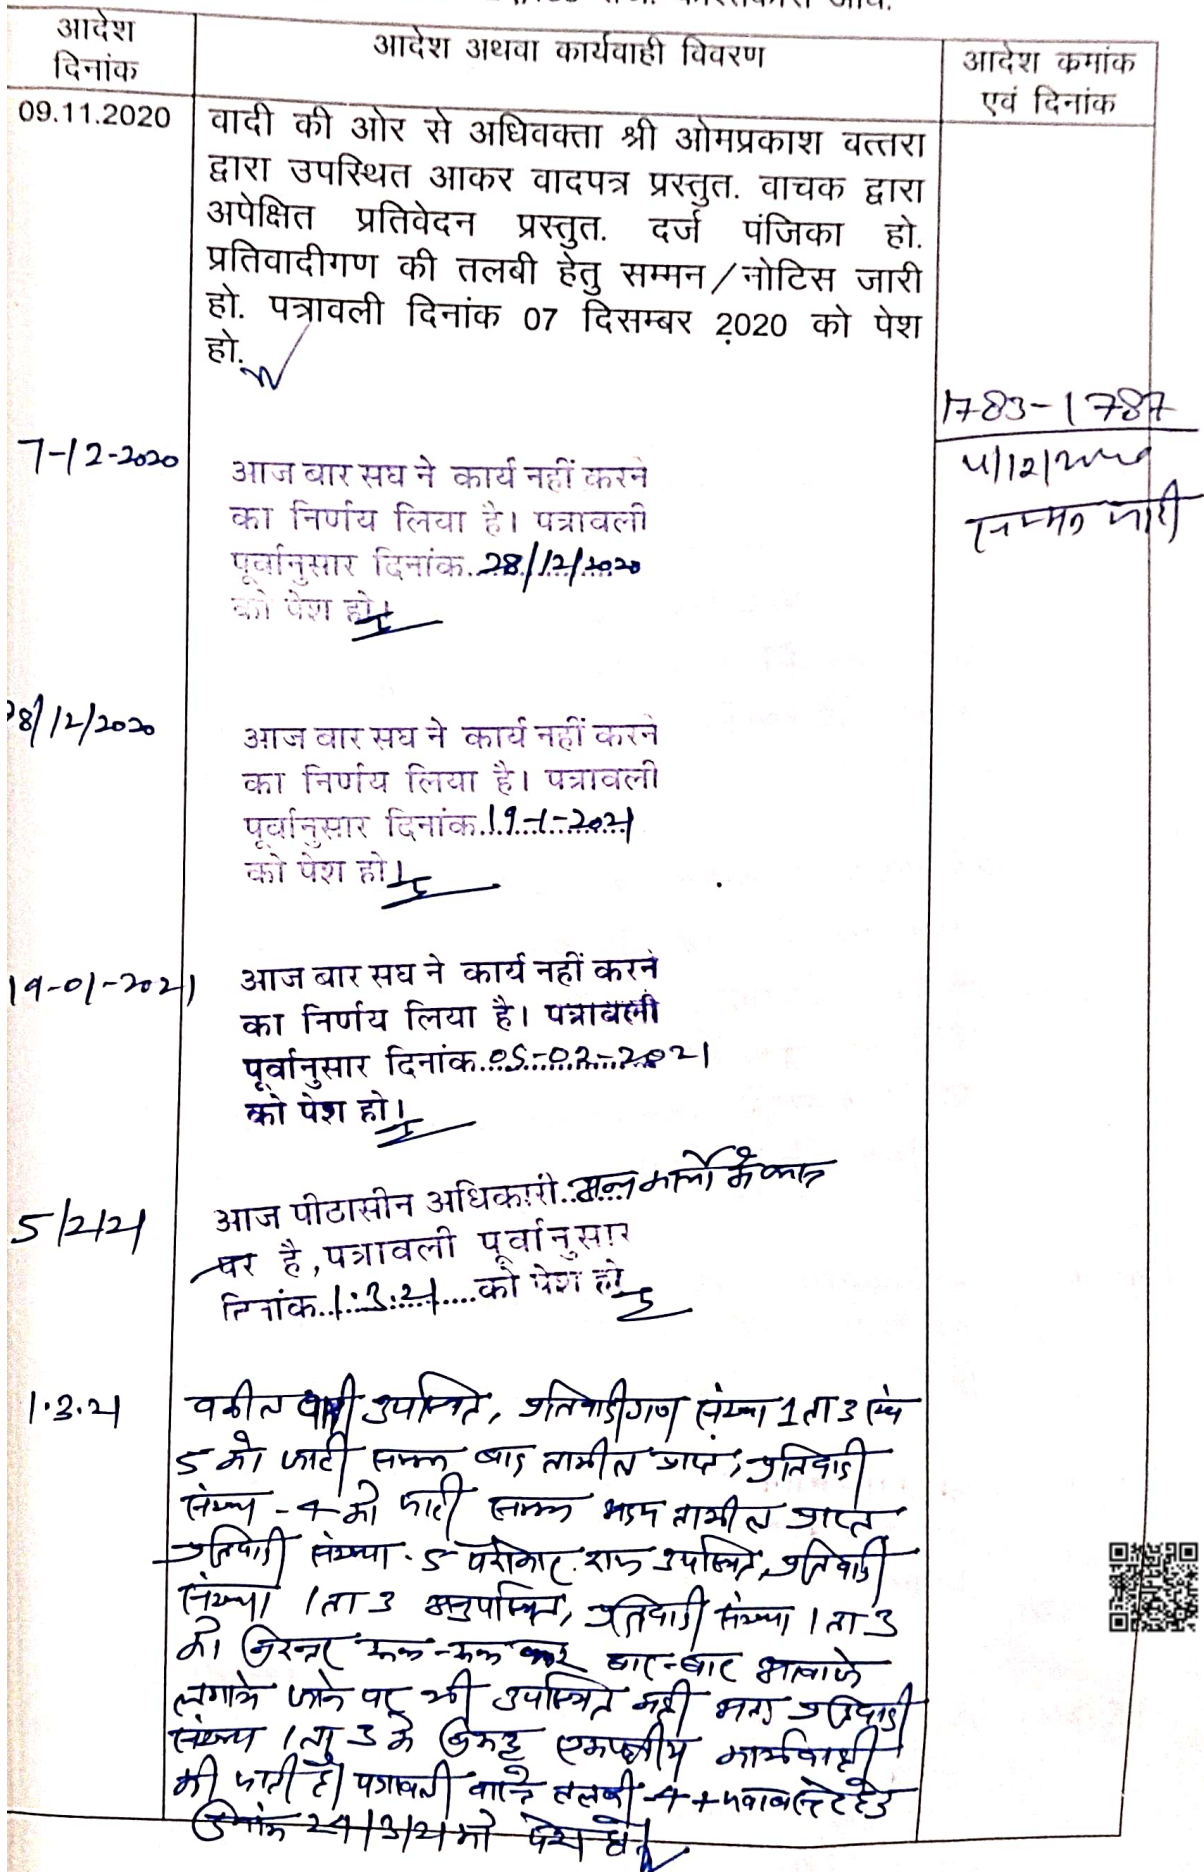 आदेश
दिनांक
आदेश अथवा कार्यवाही विवरण
आदेश कमांक
एवं दिनांक
09.11.2020
वादी की ओर से अधिवक्ता श्री ओमप्रकाश वत्तरा
द्वारा उपस्थित आकर वादपत्र प्रस्तुत. वाचक द्वारा
अपेक्षित प्रतिवेदन प्रस्तुत. दर्ज पंजिका हो.
प्रतिवादीगण की तलबी हेतु सम्मन/नोटिस जारी
हो. पत्रावली दिनांक 07 दिसम्बर 2020 को पेश
हो.
1783-1787
4/12/2020
सम्मन जारी
7-12-2020
आज बार सघ ने कार्य नहीं करने
का निर्णय लिया है। पत्रावली
पूर्वानुसार दिनांक..28/12/2020
को पेश हो।
28/12/2020
आज बार सघ ने कार्य नहीं करने
का निर्णय लिया है। पत्रावली
पूर्वानुसार दिनांक.19-1-2021
को पेश हो।
19-01-2021
आज बार सघ ने कार्य नहीं करने
का निर्णय लिया है। पत्रावली
पूर्वानुसार दिनांक.05-02-2021
को पेश हो।
5/2/21
आज पीठासीन अधिकारी..अन्य कार्यो में व्यस्त
है, पत्रावली पूर्वानुसार
दिनांक.1.3.21....को पेश हो
1.3.21
वकील वादी उपस्थित, प्रतिवादीगण संख्या 1 ता 3 एवं
5 को जारी सम्मन बाद तामील प्राप्त, प्रतिवादी
संख्या -4 को जारी सम्मन अदम तामील प्राप्त
प्रतिवादी संख्या 5 परोकार राज उपस्थित, प्रतिवादी
संख्या 1 ता 3 अनुपस्थित, प्रतिवादी संख्या 1 ता 3
को निरन्तर रूक-रूक कर बार-बार आवाजे
लगाके जाने पर भी उपस्थित नही अतः प्रतिवादी
संख्या 1 ता 3 के विरूद्ध एकपक्षीय कार्यवाही
की जाती है। पत्रावली वास्ते तलबी -4 + जवाब हेतु
दिनांक 24/3/21 को पेश हो।